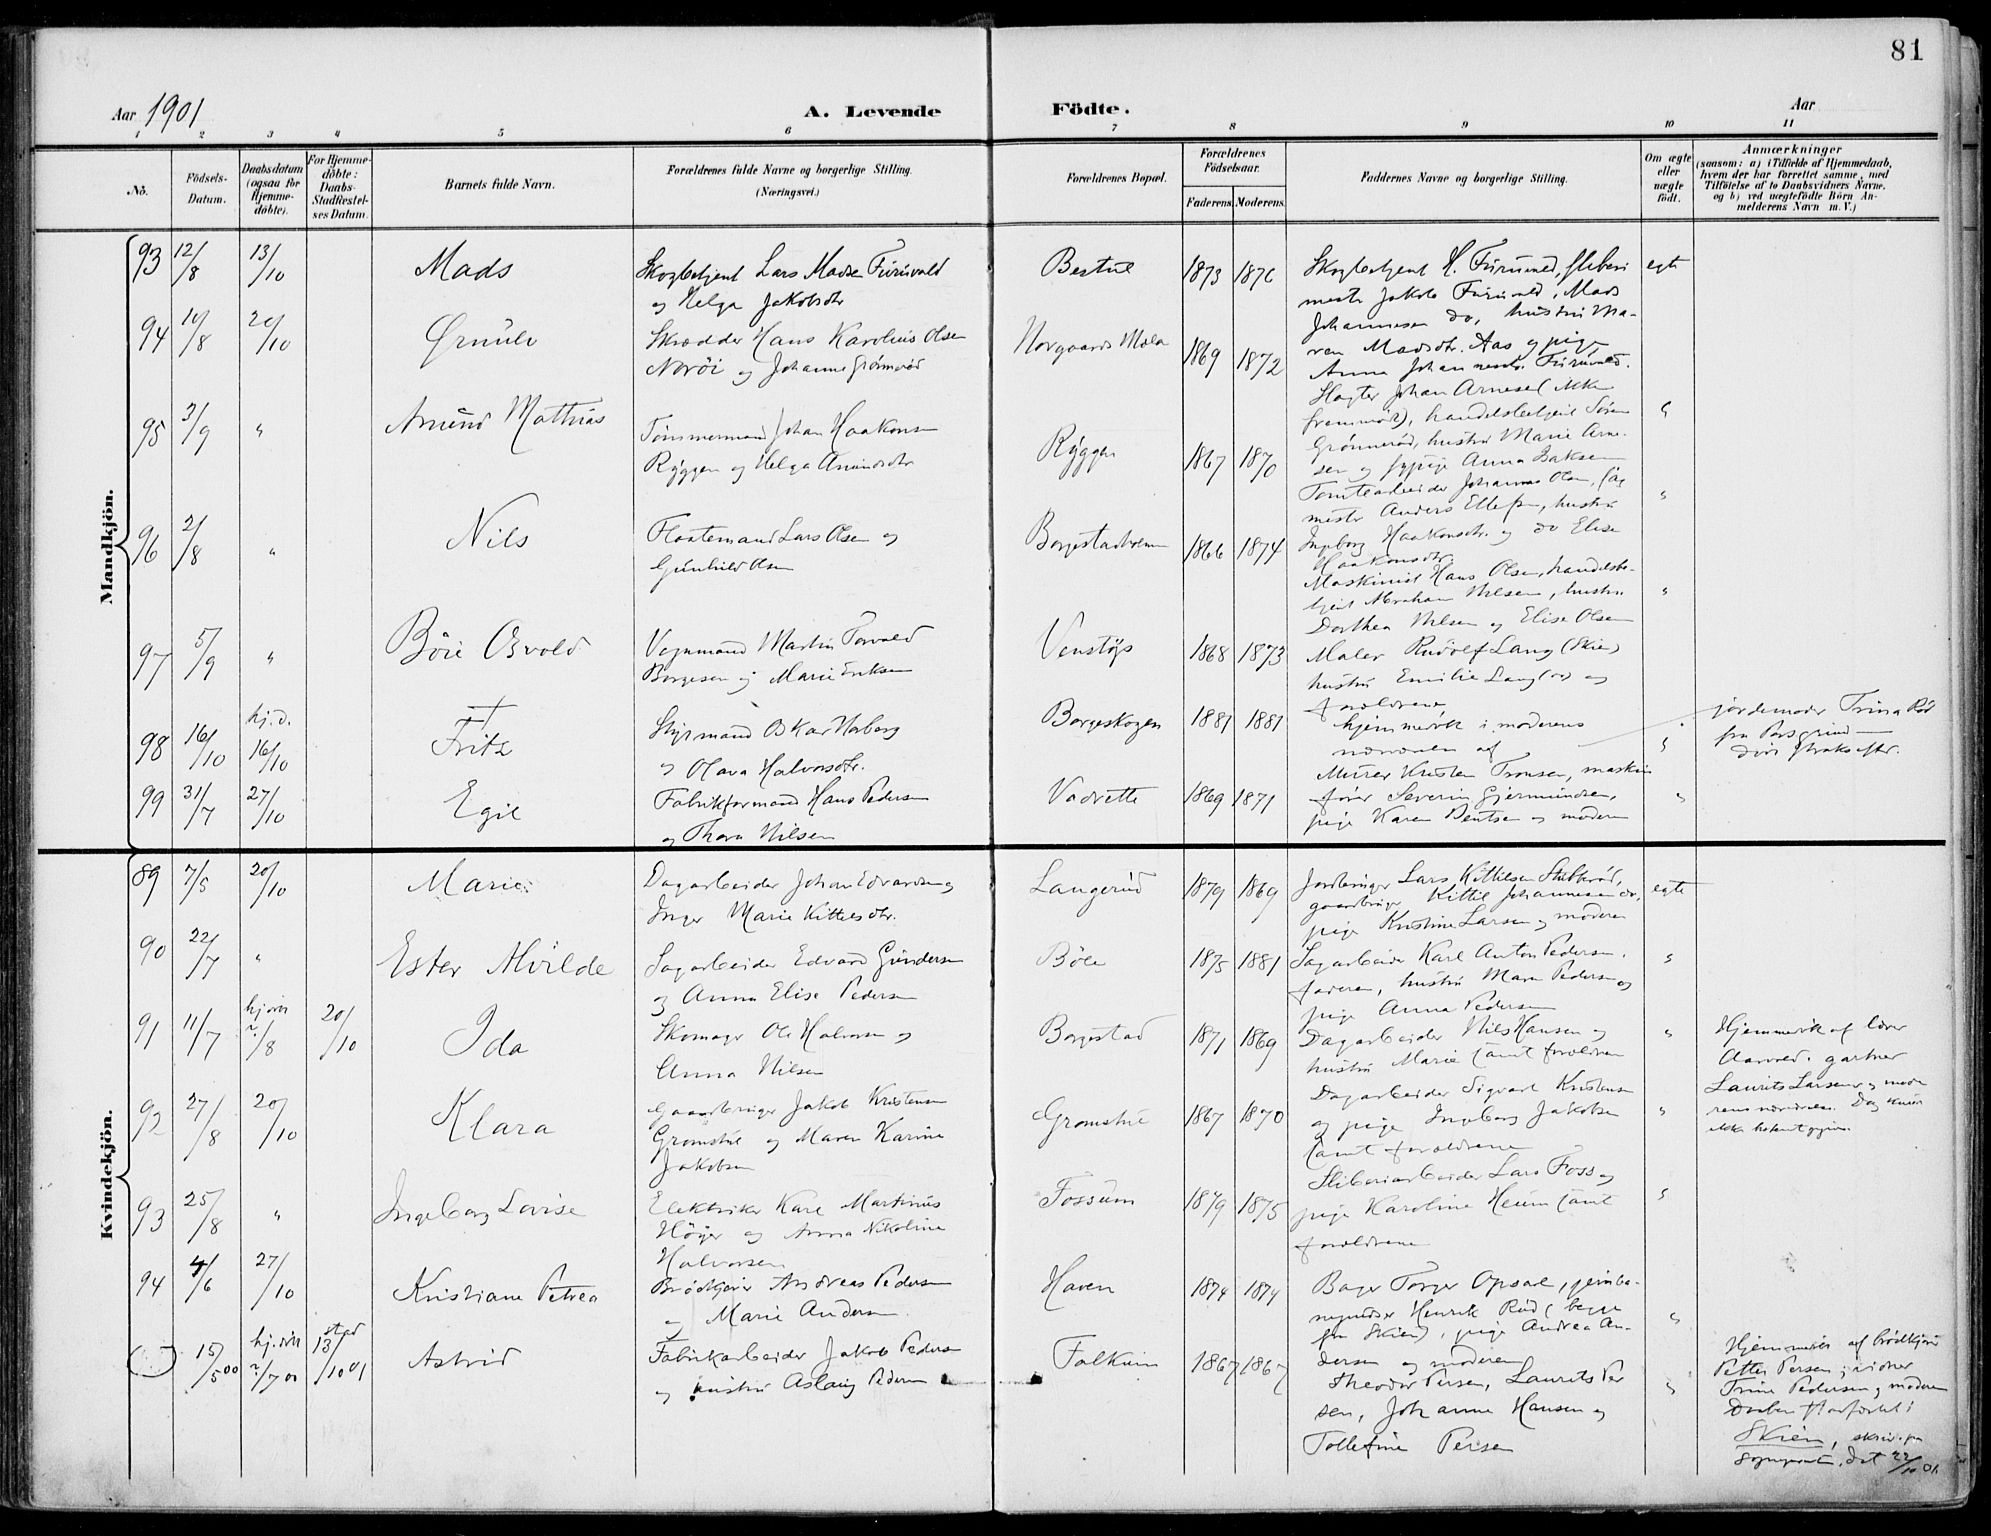 81
Aar 1901
A. Levende Födte.
Aar
1 2 3 4 5 6 7 8 9 10 11
No.
Födsels-Datum.
Daabsdatum (ogsaa for Hjemme-döbte).
For Hjemme-döbte: Daabs-Stadfæstel-ses Datum.
Barnets fulde Navn.
Forældrenes fulde Navne og borgerlige Stilling.
(Næringsvei.)
Forældrenes Bopæl.
Forældrenes Födselsaar.
Faderens. Moderens.
Faddernes Navne og borgerlige Stilling.
Om ægte eller uægte födt.
Anmærkninger
(saasom: a) i Tilfælde af Hjemmedaab,
hvem der har forrettet samme, med
Tilföielse af to Daabsvidners Navne,
og b) ved uægtefödte Börn An-
melderens Navn m. V.)
Mandkjön.
93 12/8 13/10 Mads
Skogbetjent Lars Madsen Furuvald
og Helga Jakobsdtr
Bestul 1873 1876
Skogbetjent H. Furuvald, sliberi
mester Jakob Furuvald, Mads
Johannesen do, hustru Ma-
ren Madsdtr. Aas og pige
Anna Johannesdtr. Furuvald.
egte
94 19/8 20/10 Ørnulv
Skrædder Hans Karolius Olsen
Neröi og Johanne Grönneröd
Norgaards Mæla 1869 1872
Slagter Johan Arnesen (ikke
fremmödt), handelsbetjent Sören
Grönneröd, hustru Marie Arne-
sen og sypige Anna Isaksen
95 3/9 " Amund Mathias
Tömmermand Johan Haakonsen
Ryggen og Helga Amundsdtr
Ryggen 1867 1870
Tomtearbeider Johannes Olsen, sag
mester Anders Ellefsen, hustru
Ingeborg Haakonsdtr. og do Elise
Haakonsdtr.
"
96 2/8 " Nils
Flöatemand Lars Olsen og
Gunhild Olsen
Borgestadholmen 1866 1874
Maskinist Hans Olsen, handelsbe-
tjent Abraham Nilsen, hustru
Dorthea Nilsen og Elise Olsen
"
97 5/9 " Böie Osvald
Vognmand Martin Torvald
Borgesen og Marie Eriksen
Venstöp 1868 1873
Maler Rudolf Lang (Skien)
hustru Emilie Lang (do) og
forældrene
98 16/10 hj.d. 16/10 Fritz
Styrmand Oskar Norberg
og Olava Halvorsdtr.
Borgeskogen 1881 1881
hjemmedöbt i moderens
nærværelse af
"
jordemoder Trina Röd
fra Porsgrund
Död straks efter.
99 31/7 27/10 Egil
Fabrikformand Hans Pedersen
og Thora Nilsen
Vadrette 1869 1871
Murer Kristen Tronsen, maskin
förer Severin Gjermundsen,
pige Karen Bentsen og moderen
"
Kvindekjön.
89 7/5 20/10 Marie
Dagarbeider Johan Edvardsen og
Inger Marie Kittelsdtr.
Langerud 1879 1869
Jordbruger Lars Kittilsen Stebberöd,
gaardbruger Kittil Johannesen do,
pige Kristine Larsen og moderen
egte
90 22/7 " Ester Alvilde
Sagarbeider Edvard Gundersen
og Anna Elise Pedersen
Böle 1875 1881
Sagarbeider Karl Anton Pedersen,
faderen, hustru Maren Pedersen og
pige Anna Pedersen
91 11/7 hjdöbt ?/8 20/10 Ida
Skomager Ole Halvorsen og
Anna Nilsen
Borgestad 1871 1869
Dagarbeider Nils Hansen og
hustru Marie samt forældrene
"
Hjemmedöbt af lærer
Aarvold. gartner
Laurits Larsen og mode
rens nærværelse. Dag kunde
ikke bekjentgives.
92 27/8 20/10 Klara
Gaardbruger Jakob Kristensen
Gromstul og Maren Karine
Jakobsen
Gromstul 1867 1870
Dagarbeider Sigvart Kristensen
og pige Ingeborg Jakobsen
samt forældrene
"
93 25/8 " Ingeborg Lovise
Elektriker Karl Martinus
Höyer og Anna Nikoline
Halvorsen
Fossum 1879 1875
Sliberiarbeider Lars Foss og
pige Karoline Heum samt
forældrene
94 4/6 27/10 Kristiane Petrea
Brödkjörer Andreas Pedersen
og Marie Andersen
Haven 1874 1874
Bager Torger Opsal, jernba-
negnidser Henrik Röd (begge
fra Skien), pige Andrea An-
dersen og moderen
"
15/5 00 hj.döbt ?/7 00 stad 13/10 01 Astrid
Fabrikarbeider Jakob Pedersen
og hustru Aslaug Pedersen
Falkum 1867 1867
Theodor Persen, Laurits Per
sen, Johanne Hansen og
Tollefine Persen
Hjemmedöbt af brödkjörer
Petter Persen; vidner
Trine Pedersen og moderen
Daaben stadfæstet i
Skien, skriv. fra
sogneprest. dat 22/10 01.